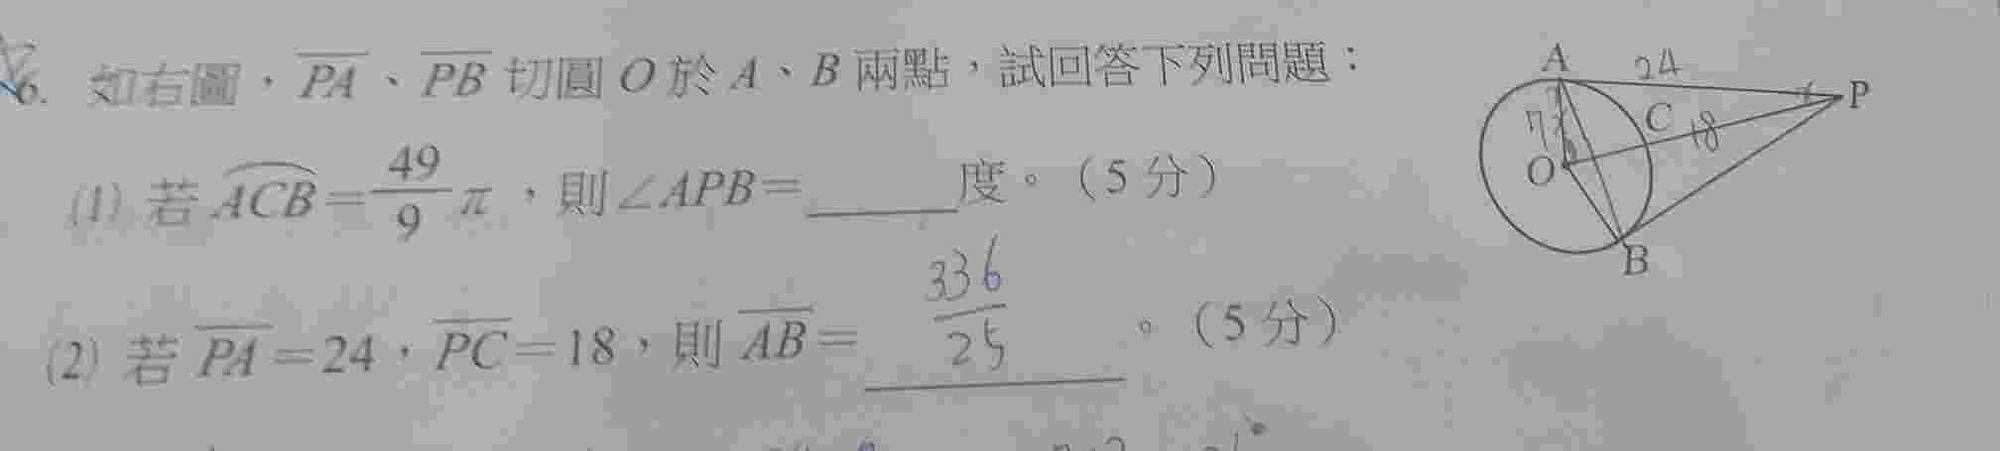 6. 如右圖，PA、PB 切圓 O 於 A、B 兩點，試回答下列問題：
(1) 若 ACB=49/9 π，則∠APB=_____度。（5 分）
(2) 若 PA=24，PC=18，則 AB= 336/25 。（5 分）
A 24 P
7 C 18
O
B